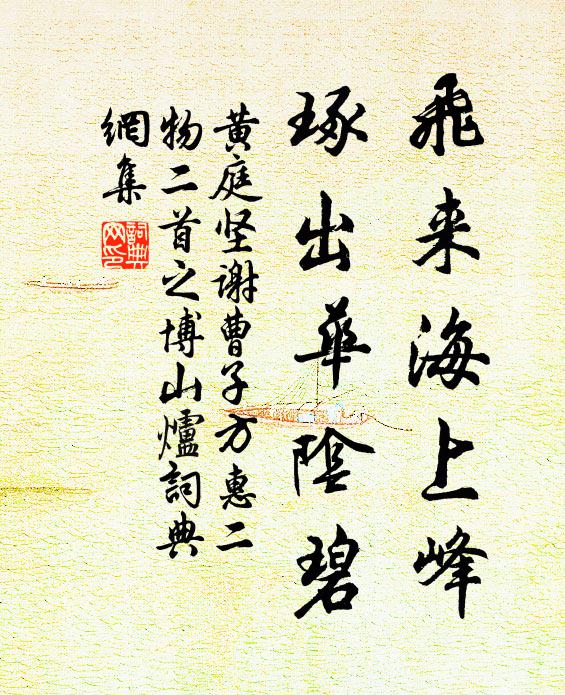 飛来海上峰
琢出華陰碧
黄庭坚谢曹子方惠二
物二首之博山爐詞典
網集
詞典
网印